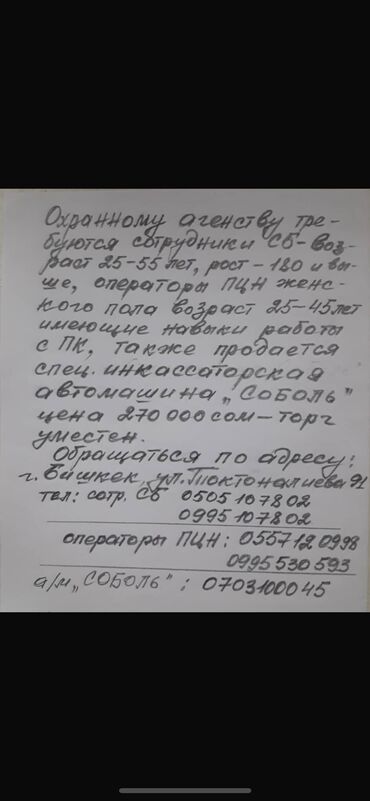 Охранному агенству тре-
буются сотрудники СБ - воз-
раст 25-55 лет, рост - 180 и вы-
ше, операторы ПЦН женс-
кого пола возраст 25-45 лет
имеющие навыки работы
с ПК, также продается
спец. инкассаторская
автомашина „СОБОЛЬ"
цена 270 000 сом - торг
уместен.
Обращаться по адресу:
г. Бишкек, ул. Токтоналиева 91
тел: сотр. СБ 0505 107802
0995 107802
операторы ПЦН: 0557120998
0995530593
а/м „СОБОЛЬ": 0703100045